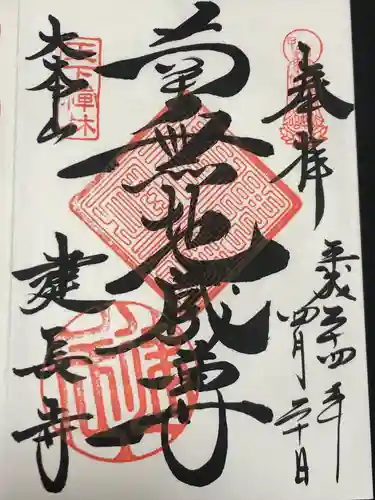 奉拝
平成二十四年
四月二十日
南無地蔵尊
天下禅林
大本山
建長寺